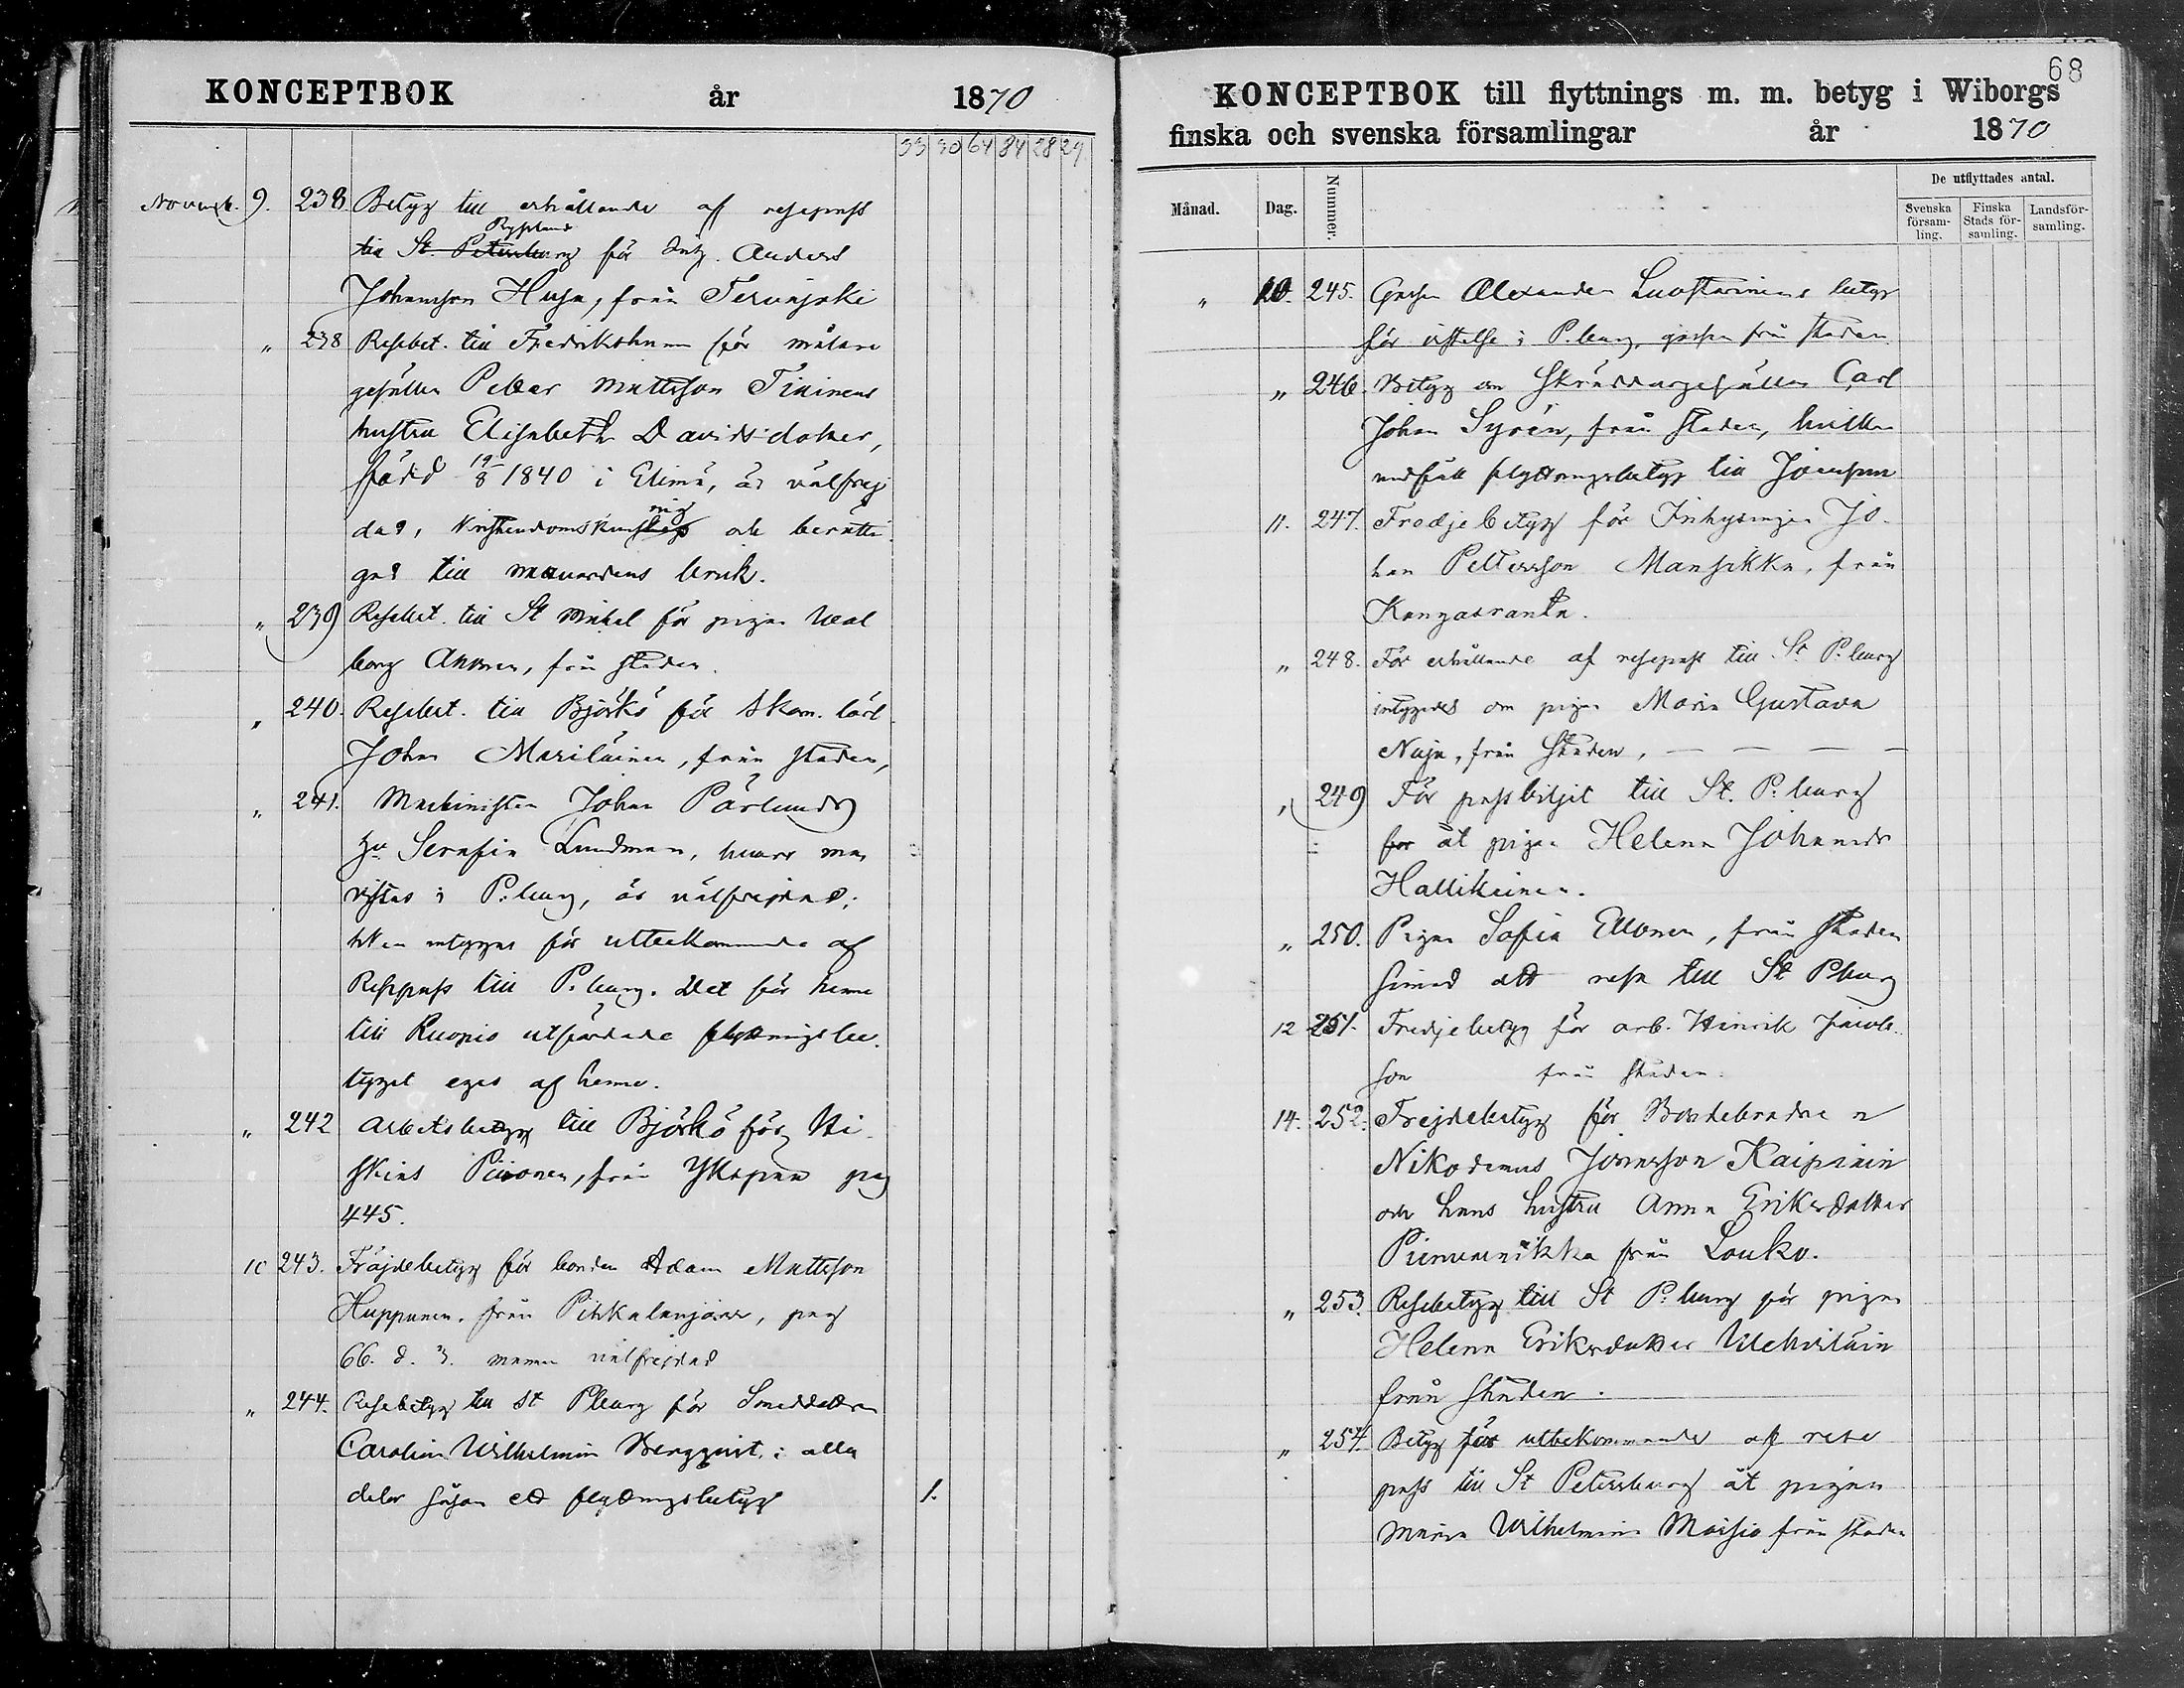 KONCEPTBOK år 1870
33 30 64 84 28 29
Novemb. 9. 238. Betyg till erhållande af resepass
Ryssland
till St. Petersburg för Inh. Anders
Johansson Husa, från Tervajoki
" 238 Resebet. till Fredrikshamn för målare
gesällen Petter Mattsson Tiainens
hustru Elisabeth Davidsdotter,
född 19/8 1840 i Elimä, är välfrej
dad, kristendomskunnig och berätti
gad till nattvardens bruk.
" 239 Resebet. till St Mikel för pigan Wal
borg Ahonen, från staden.
" 240. Resebet. till Björkö för Skom. lärl.
Johan Mariläinen, från staden,
" 241. Machinisten Johan Pärlunds
hu Serafia Lundman, hvars man
vistas i P:burg, är välfrejdad;
intygas för utbekommande af
Respass till P:burg. Det för henne
till Kuopio utfärdade flyttningsbe-
tyget eges af henne.
" 242 Arbetsbetyg till Björkö för Hi-
skias Piironen, från Ykspää pag
445.
10 243. Fräjdebetyg för bonden Adam Mattsson
Huppunen, från Pihkalanjärvi, pag
66. d. 3. mannen välfrejdad
" 244. Resebetyg till St Pburg för Smeddottren
Carolina Wilhelmina Bergqvist, i alla
delar såsom ett flyttningsbetyg 1.
68
KONCEPTBOK till flyttnings m. m. betyg i Wiborgs
finska och svenska församlingar år 1870
Månad. Dag. Nummer. De utflyttades antal.
Svenska församling. Finska Stads församling. Landsförsamling.
" 10. 245. Gossen Alexander Luostarinens betyg
för vistelse i P.burg, gossen från staden
" 246. Betyg om Skräddaregesällen Carl
Johan Syrén, från staden, hvilken
undfått flyttningsbetyg till Joensuu
11. 247. Fredjebetyg för Inhysingen Jo-
han Pettersson Mansikka, från
Kangasranta.
" 248. För erhållande af resepass till St. P:burg
intygades om pigan Maria Gustava
Nuija, från Staden, — — — —
" 249 För passbiljet till St. P:burg
for åt pigan Helena Johansdr
Hallikainen.
" 250. Pigan Sofia Ellonen, från staden
sinnad att resa till St Pburg
12 251. Fredjebetyg för arb. Hinrik Jacob-
son från staden.
14. 252. Frejdebetyg för Bondebrodren
Nikodemus Jöransson Kaipiain
och hans hustru Anna Eriksdotter
från Louko.
" 253. Resebetyg till St P:burg för pigan
Helena Eriksdotter Wehviläin
från staden.
" 254. Betyg för utbekommande af rese
pass till St Petersburg åt pigan
Maria Wilhelmina Moisio från staden